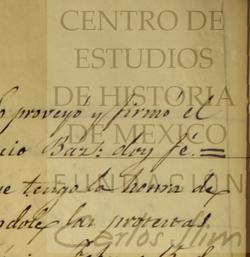 CENTRO DE
ESTUDIOS
DE HISTORIA
DE MEXICO
FUNDACIÓN
Carlos Slim
o proveyó y firmó el
cio Baz: doy fé.=
ue tengo la honra de
ndole las protestas